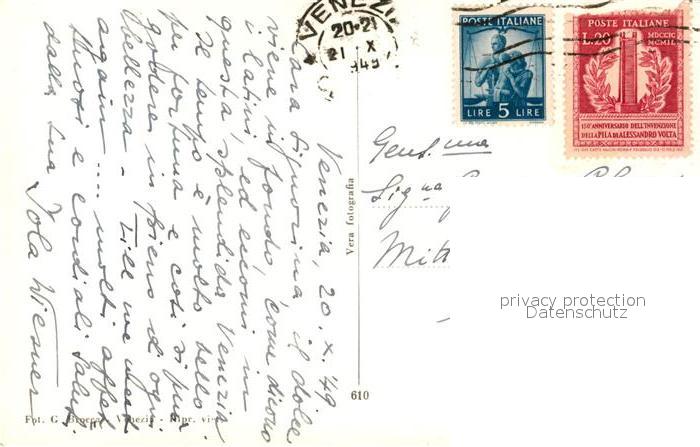 Venezia, 20.X.49
Cara Signorina, il dolce
viene in fondo, come dicono
i latini, ed eccomi in
questa splendida Venezia
il tempo è molto bello
per fortuna e così si può
godere in pieno d'ogni
bellezza - Till we meet
again .... molti affet
tuosi e cordiali saluti
dalla sua Iola Wiesner
VENEZIA
20-21
21 X
1949
POSTE ITALIANE
LIRE 5 LIRE
POSTE ITALIANE
L.20
MDCCIC
MCMIL
150° ANNIVERSARIO DELL'INVENZIONE
DELLA PILA DI ALESSANDRO VOLTA
Gent.ma
Sig.na
Vera fotografia
610
Fot. G. Brocca - Venezia - Ripr. vi
privacy protection
Datenschutz